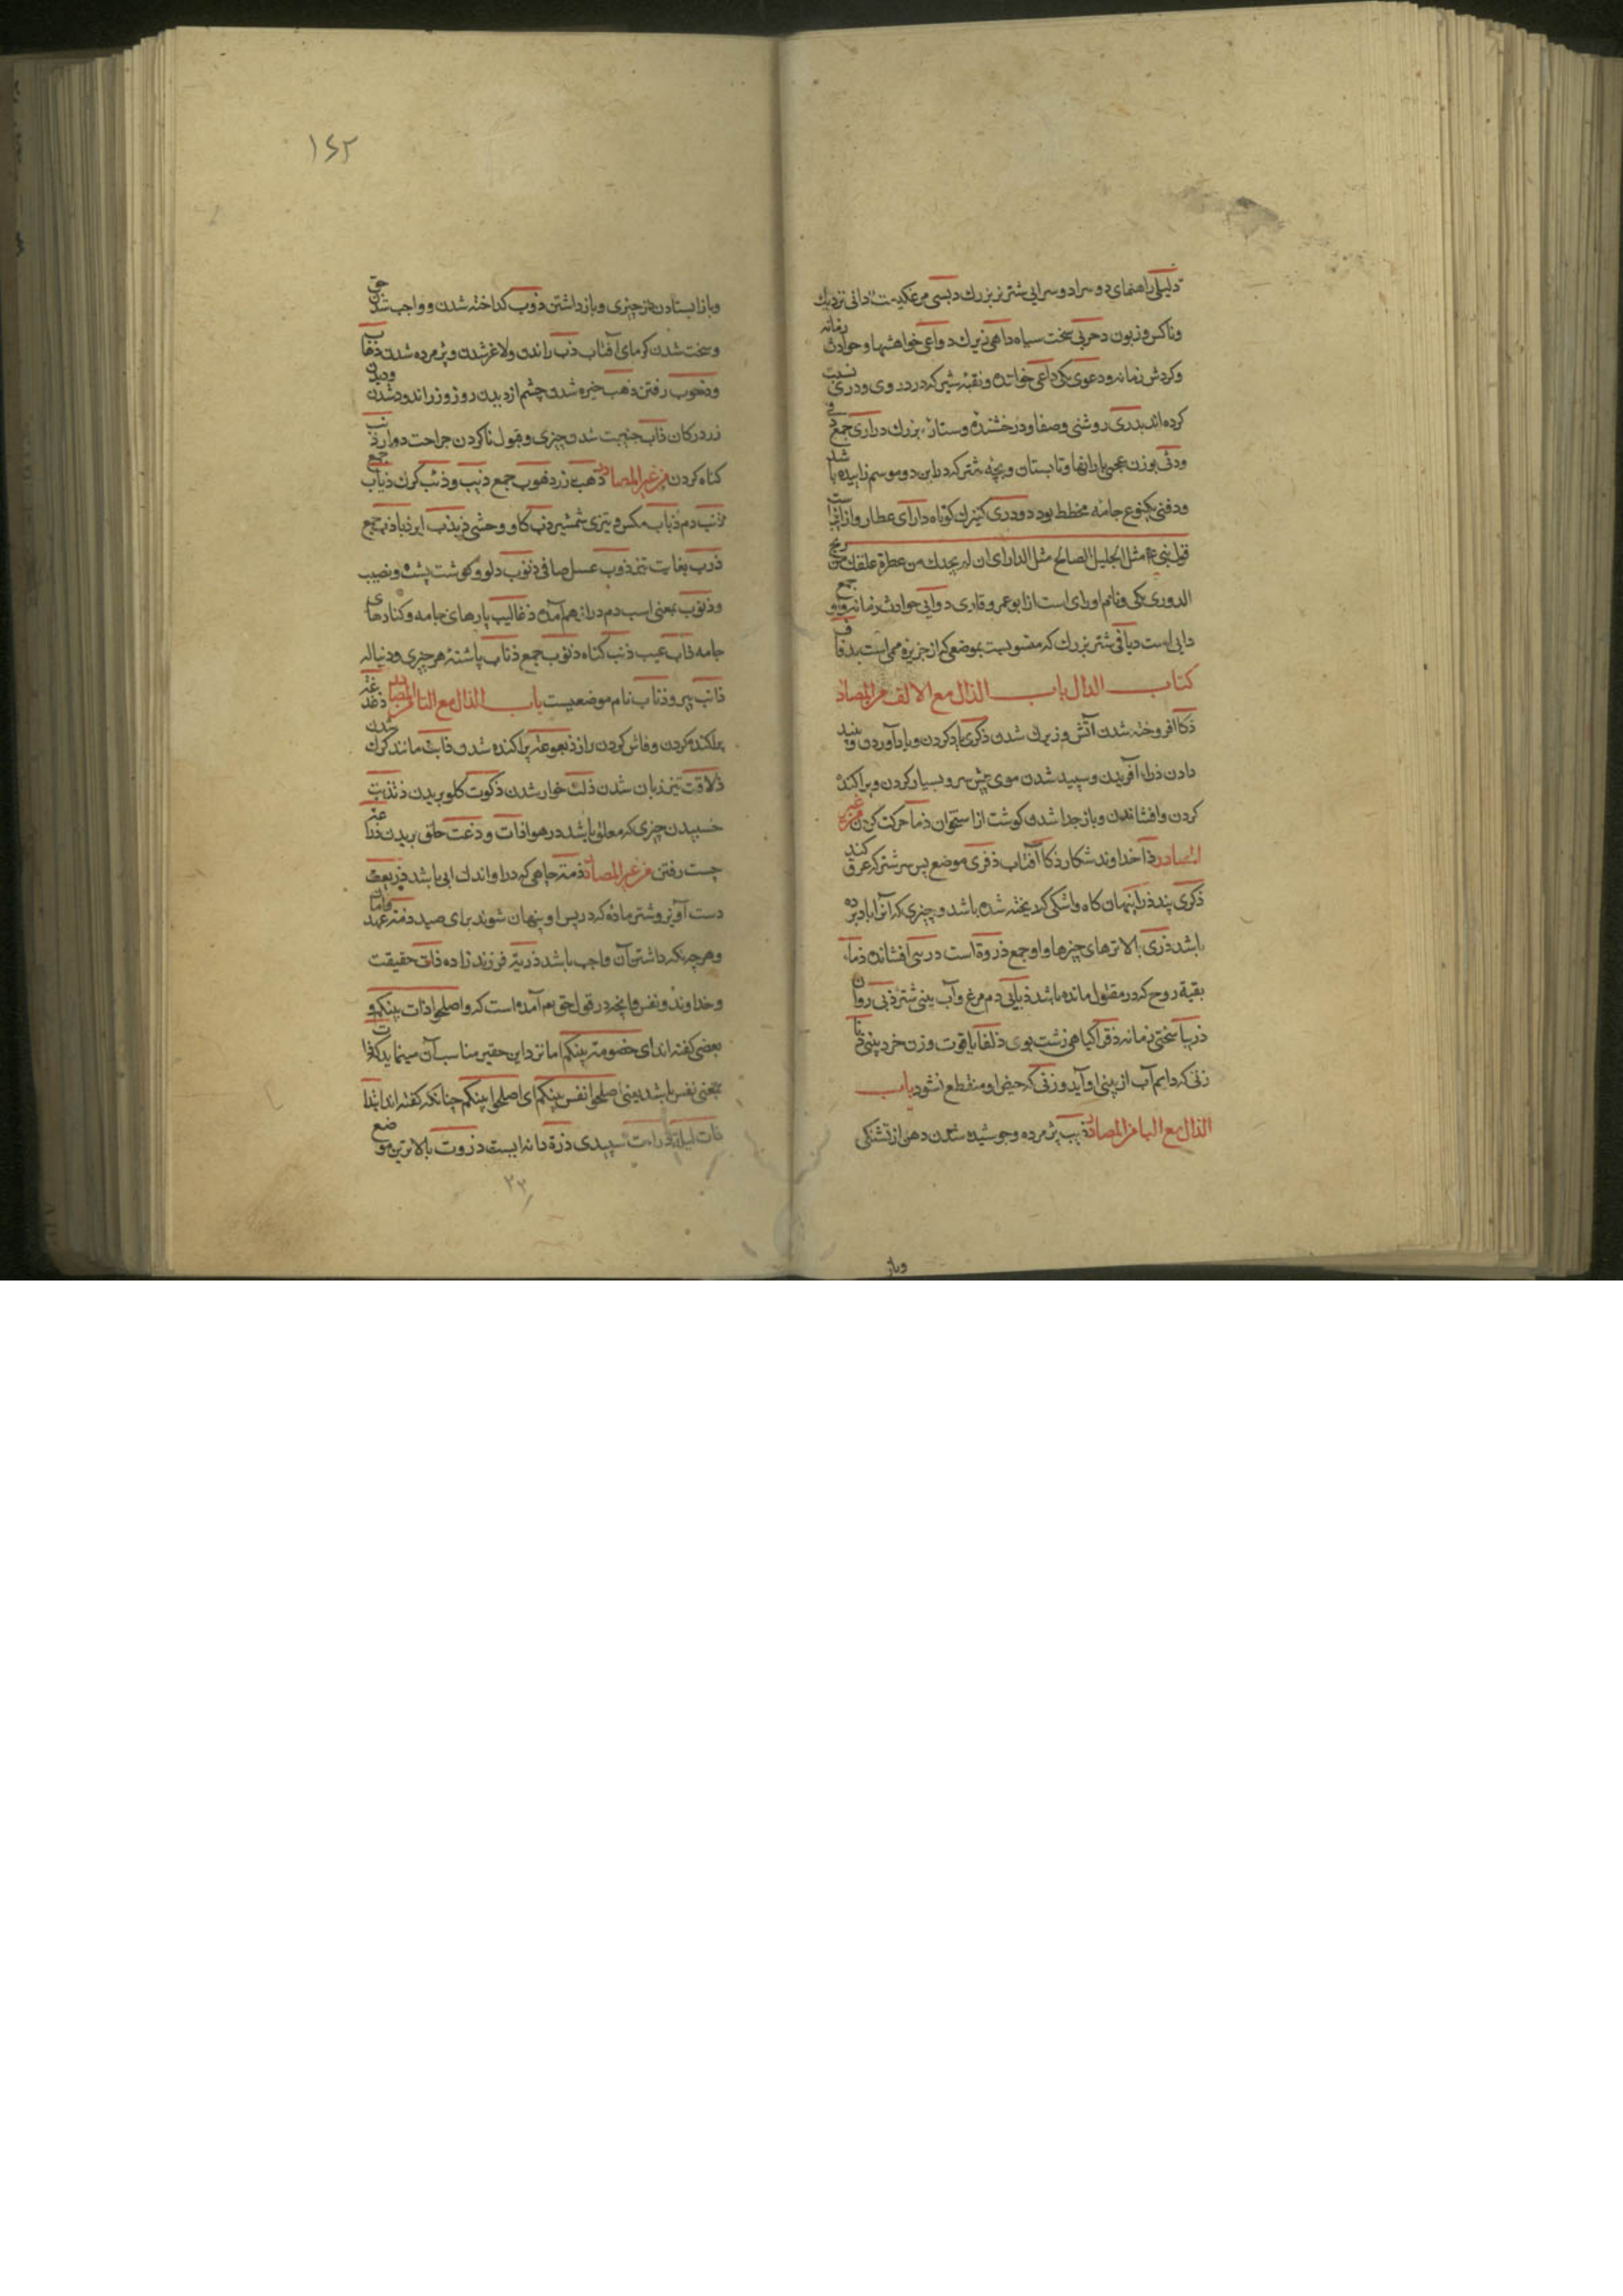 دلیلی راهنمای دوسراد و سرایی شتر نر بزرك دبسی مرغکیست دانی نزدیك
وناکس و زبون دحربی سخت سیاه داهی زیرك دواعی خواهشها و حوادث زمانه
وکردش زمانه ودعوی یکی داعی خواننده و بقیه شیر که در دروی ودری نسبت
کرده اند بدری روشنی وصفا ودرخشنده وستاره بزرك دراری جمع
ودثی بوزن عجمی بارانها وتابستان وبچه شتر که در این دو موسم زاییده باشد
ودفنی یکنوع جامه مخطط بود دودری کنیزك کوتاه دارای عطار وازانست
قول نبی ع م مثل الجلیل الصالح مثل الداری ان لم یجدك من عطره علقك من ریح
الدوری یکی و نام اورای است از ابو عمرو قاری دوایی حوادث زمانه جمع
دایی است دیافی شتر بزرك که منسوبست بموضعی که از جزیره می است بدیاف
کتاب الذال باب الذال مع الالف من المصادر
ذکا افروخته شدن آتش و زیرك شدن ذکری یاد کردن و یاد آوردن و پند
دادن ذرا آفریدن و سپید شدن موی پیش سر و بسیار کردن و پراکنده
کردن وافشاندن وباز جدا شدن کوشت از استخوان ذما حرکت کردن من غیر
المصادر ذا خداوند شکار ذکا آفتاب ذفری موضع پس سر شتر که عرق کند
ذکری پند ذرا پنهان کاه واشکی که ریخته شده باشد و چیزی که آنرا باد برده
باشد ذری بالاترهای چیزها واو جمع ذروة است درسی افشانده ذماء
بقیة روح که در مقتول مانده باشد ذبابی دم مرغ وآب بینی شتر ذبی روان
ذربا سختی زمانه ذفرا کیاهی زشت بوی ذلفا یاقوت وزن خرد بینی
زنی که دایم آب از بینی او آید و زنی که حیض او منقطع نشود باب
الذال مع البا من المصادر ذبب پژمرده و جوشیده شدن دهن از تشنکی
وباز
۱۶۲
وباز ایستادن از چیزی وباز داشتن ذوب کداخته شدن وواجب شدن حق
وسخت شدن کرمای آفتاب ذب راندن ولاغر شدن و پژمرده شدن ذهاب
وذهوب رفتن ذهب خیره شدن چشم از دیدن روز و زر اندود شدن
زر در کان ذاب جنبیدن چیزی وقبول ناکردن جراحت دوا را ذنب
کناه کردن من غیر المصادر ذهب زر ذهوب جمع ذیب وذئب کرك ذیاب جمع
ذنب دم ذباب مکس وتیزی شمشیر ذب کاو وحشی ذبذب ایر ذباذب جمع
ذرب بغایت تیز ذوب عسل صافی ذنوب دلو وکوشت پشت ونصیب
وذنوب بمعنی اسب دم دراز هم آمده ذعالیب پارهای جامه وکنارهای
جامه ذاب عیب ذنب کناه ذنوب جمع ذناب پاشنهٔ هر چیزی ودنباله
ذانب پیرو ذناب نام موضعیست باب الذال مع التا من المصادر
پراکنده کردن وفاش کردن راز ذیعوعة پراکنده شدن ذابت مانند کرك شدن
ذلاقت تیز زبان شدن ذلت خوار شدن ذکوت کلو بریدن ذبذبت
جنبیدن چیزی که معلق باشد در هوا ذات وذعت حلق بریدن
چست رفتن من غیر المصادر ذمة چاهی که در او اندك ابی باشد ذریعت
دست آویز وشتر ماده که در پس او پنهان شوند برای صید ذمة عهد وامان
وهرچه نکه داشتن آن واجب باشد ذریة فرزند زاده ذات حقیقت
وخداوند ونفس وآنچه در قول حق بهم آمده است که واصلحوا ذات بینکم و
بعضی کفته اند ای خصومة بینکم اما نزد این حقیر مناسب آن مینماید که ذات
بمعنی نفس باشد یعنی اصلحوا نفس بینکم ای اصلحوا بینکم چنانکه کفته اند
ذات لیلة ذرات سپیدی ذرة دانه ایست ذروت بالاترین موضع
۲۳